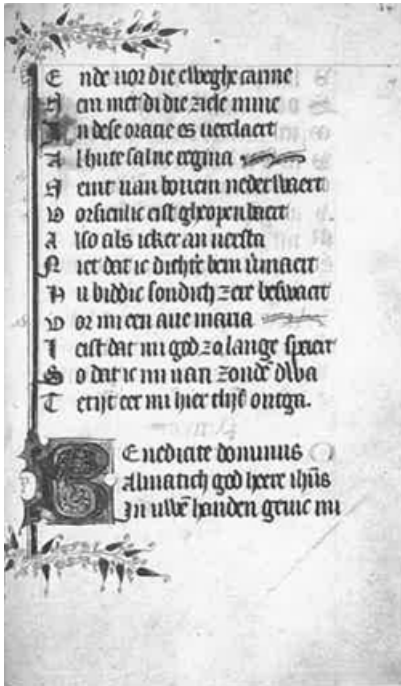 E nde uor die eweghe
S en met di die ziele mine
I n dese oracie es uerclaert
A l hute salue regina
N emt uan bouem neder waert
V orsienlic eist gheopenbaert
A lso als icker an uersta
N iet dat ic dichte bem vmaert
H u biddic sondich zere beswaert
V or mi een aue maria
L eist dat mi god zo lange spaert
S o dat ic mi uan zondē dwa
T erijt eer mi hier tlijf ontga.
B Enedicite dominus
Almatich god heere ihūs
In uwē handen geuic mi